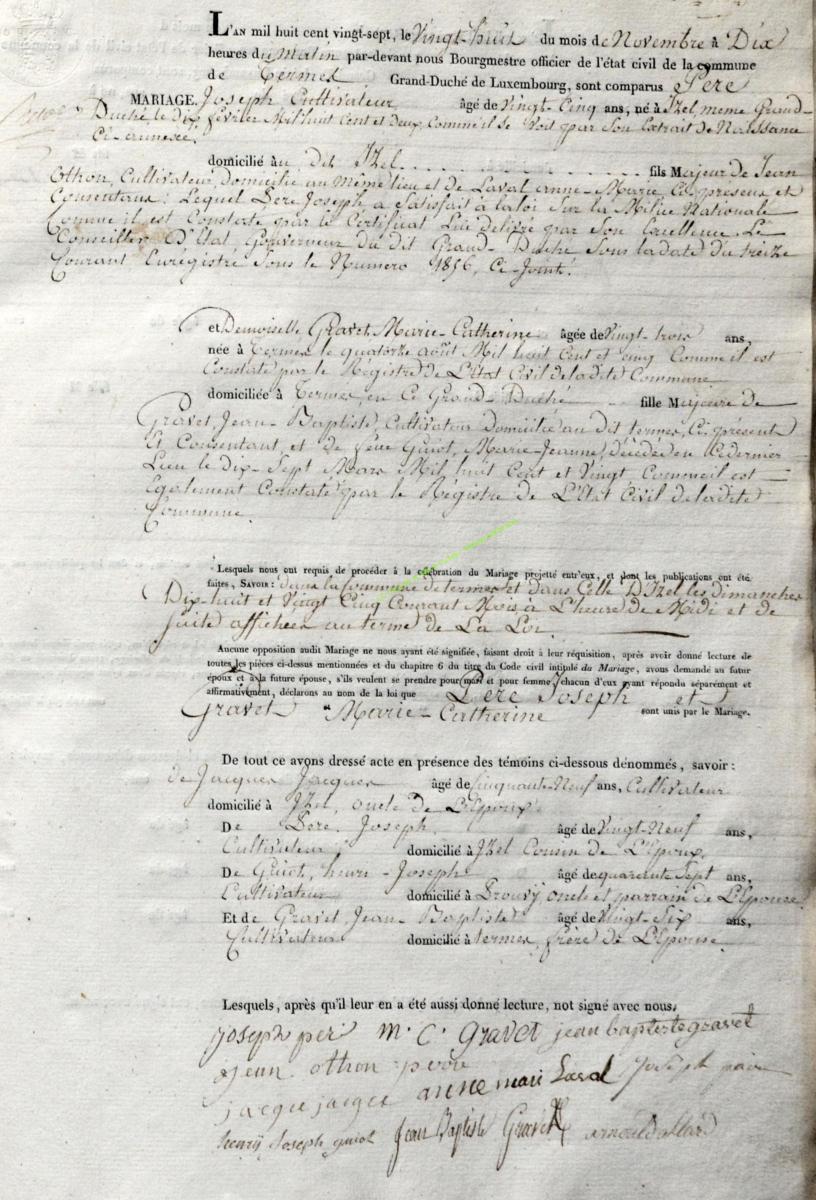 L'AN mil huit cent vingt-sept, le Vingt-huit du mois de Novembre à Dix
heures du Matin par-devant nous Bourgmestre officier de l'état civil de la commune
de Termes Grand-Duché de Luxembourg, sont comparus Pere
MARIAGE. Joseph Cultivateur âgé de Vingt-Cinq ans, né à Izel, même Grand-
Duché, le dix février Mil huit Cent et deux, Comme il se Voit par Son Extrait de Naissance
Ci-annexée.
domicilié au dit Izel fils Majeur de Jean
Othon, Cultivateur, domicilié au même lieu et de Laval Anne-Marie, Ci présens et
Consentans: Lequel Pere Joseph a Satisfait à la loi Sur la Milice Nationale
Comme il est Constaté par le Certificat Lui délivré par Son Excellence Le
Conseiller D'Etat, Gouverneur du dit Grand-Duché Sous la date du treize
Courant Enrégistré Sous le Numero 1856, Ci-Jointe.
et Demoiselle Gravet, Marie-Catherine âgée de Vingt-trois ans,
née à Termes le quatorze août Mil huit Cent et cinq Comme il est
Constaté par le Régistre de L'Etat Civil de ladite Commune
domiciliée à Termes, en Ce Grand-Duché fille Majeure de
Gravet, Jean-Baptiste, Cultivateur domicilié au dit termes, Ci présent
Et Consentant, et de feue Guiot, Marie-Jeanne, décédée en ce dernier
Lieu le dix-Sept Mars Mil huit Cent et Vingt Comme il est
Egalement Constaté par le Régistre de L'Etat Civil de ladite
Commune.
Lesquels nous ont requis de procéder à la célébration du Mariage projetté entr'eux, et dont les publications ont été
faites, SAVOIR: dans la Commune de termes et dans Celle D'Izel les dimanches
Dix-huit et Vingt Cinq Courant Mois à L'heure de Midi et de
suite affichées au terme de La Loi.
Aucune opposition audit Mariage ne nous ayant été signifiée, faisant droit à leur réquisition, après avoir donné lecture de
toutes les pièces ci-dessus mentionnées et du chapitre 6 du titre du Code civil intitulé du Mariage, avons demandé au futur
époux et à la future épouse, s'ils veulent se prendre pour mari et pour femme, chacun d'eux ayant répondu séparément et
affirmativement, déclarons au nom de la loi que Pere Joseph et
Gravet Marie-Catherine sont unis par le Mariage.
De tout ce avons dressé acte en présence des témoins ci-dessous dénommés, savoir:
de Jacques Jacques âgé de Cinquante-Neuf ans, Cultivateur
domicilié à Izel, oncle de L'Epoux.
De Pere Joseph, âgé de Vingt-Neuf ans,
Cultivateur domicilié à Izel Cousin de L'Epoux,
De Guiot, henri-Joseph âgé de quarante Sept ans,
Cultivateur domicilié à Prouvy, oncle et parrain de L'Epouse
Et de Gravet Jean-Baptiste âgé de Vingt-Six ans,
Cultivateur domicilié à termes, frère de L'Epouse.
Lesquels, après qu'il leur en a été aussi donné lecture, ont signé avec nous.
joseph per m. C. gravet jean baptiste gravet
jean othon
jacque jacques anne mari Laval Joseph
henry Joseph guiot Jean Baptiste Gravet arnould allard